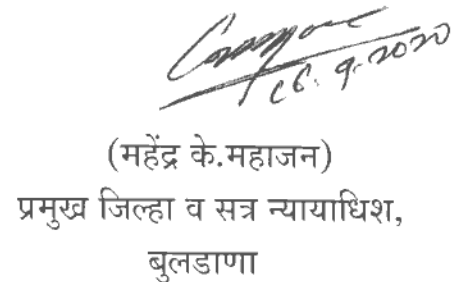 9.2020
(महेंद्र के.महाजन)
प्रमुख जिल्हा व सत्र न्यायाधिश,
बुलडाणा